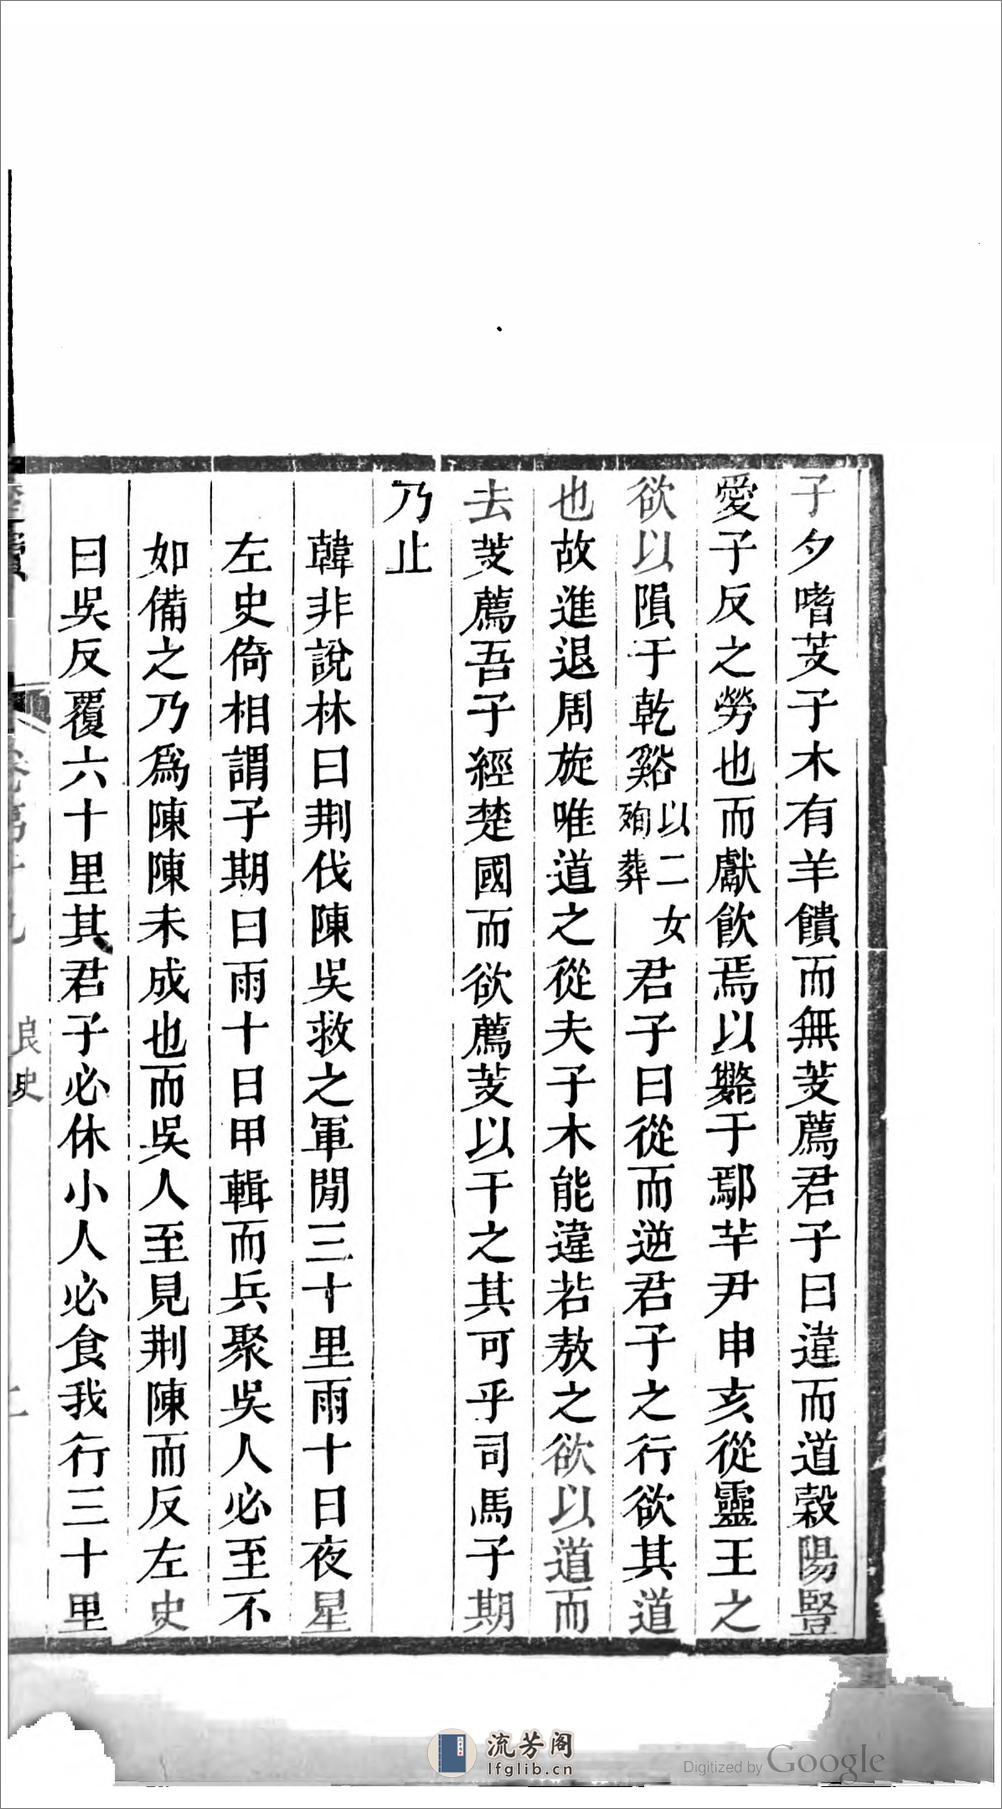 子夕嗜芰子木有羊饋而無芰薦君子曰違而道穀陽豎
愛子反之勞也而獻飲焉以斃于鄢芋尹申亥從靈王之
欲以隕于乾谿以二女殉葬君子曰從而逆君子之行欲其道
也故進退周旋唯道之從夫子木能違若敖之欲以道而
去芰薦吾子經楚國而欲薦芰以干之其可乎司馬子期
乃止
韓非說林曰荆伐陳吳救之軍閒三十里雨十日夜星
左史倚相謂子期曰雨十日甲輯而兵聚吳人必至不
如備之乃爲陳陳未成也而吳人至見荆陳而反左史
曰吳反覆六十里其君子必休小人必食我行三十里
楚寶
卷第十九
良史
二
流芳阁
lfglib.cn
Digitized by Google